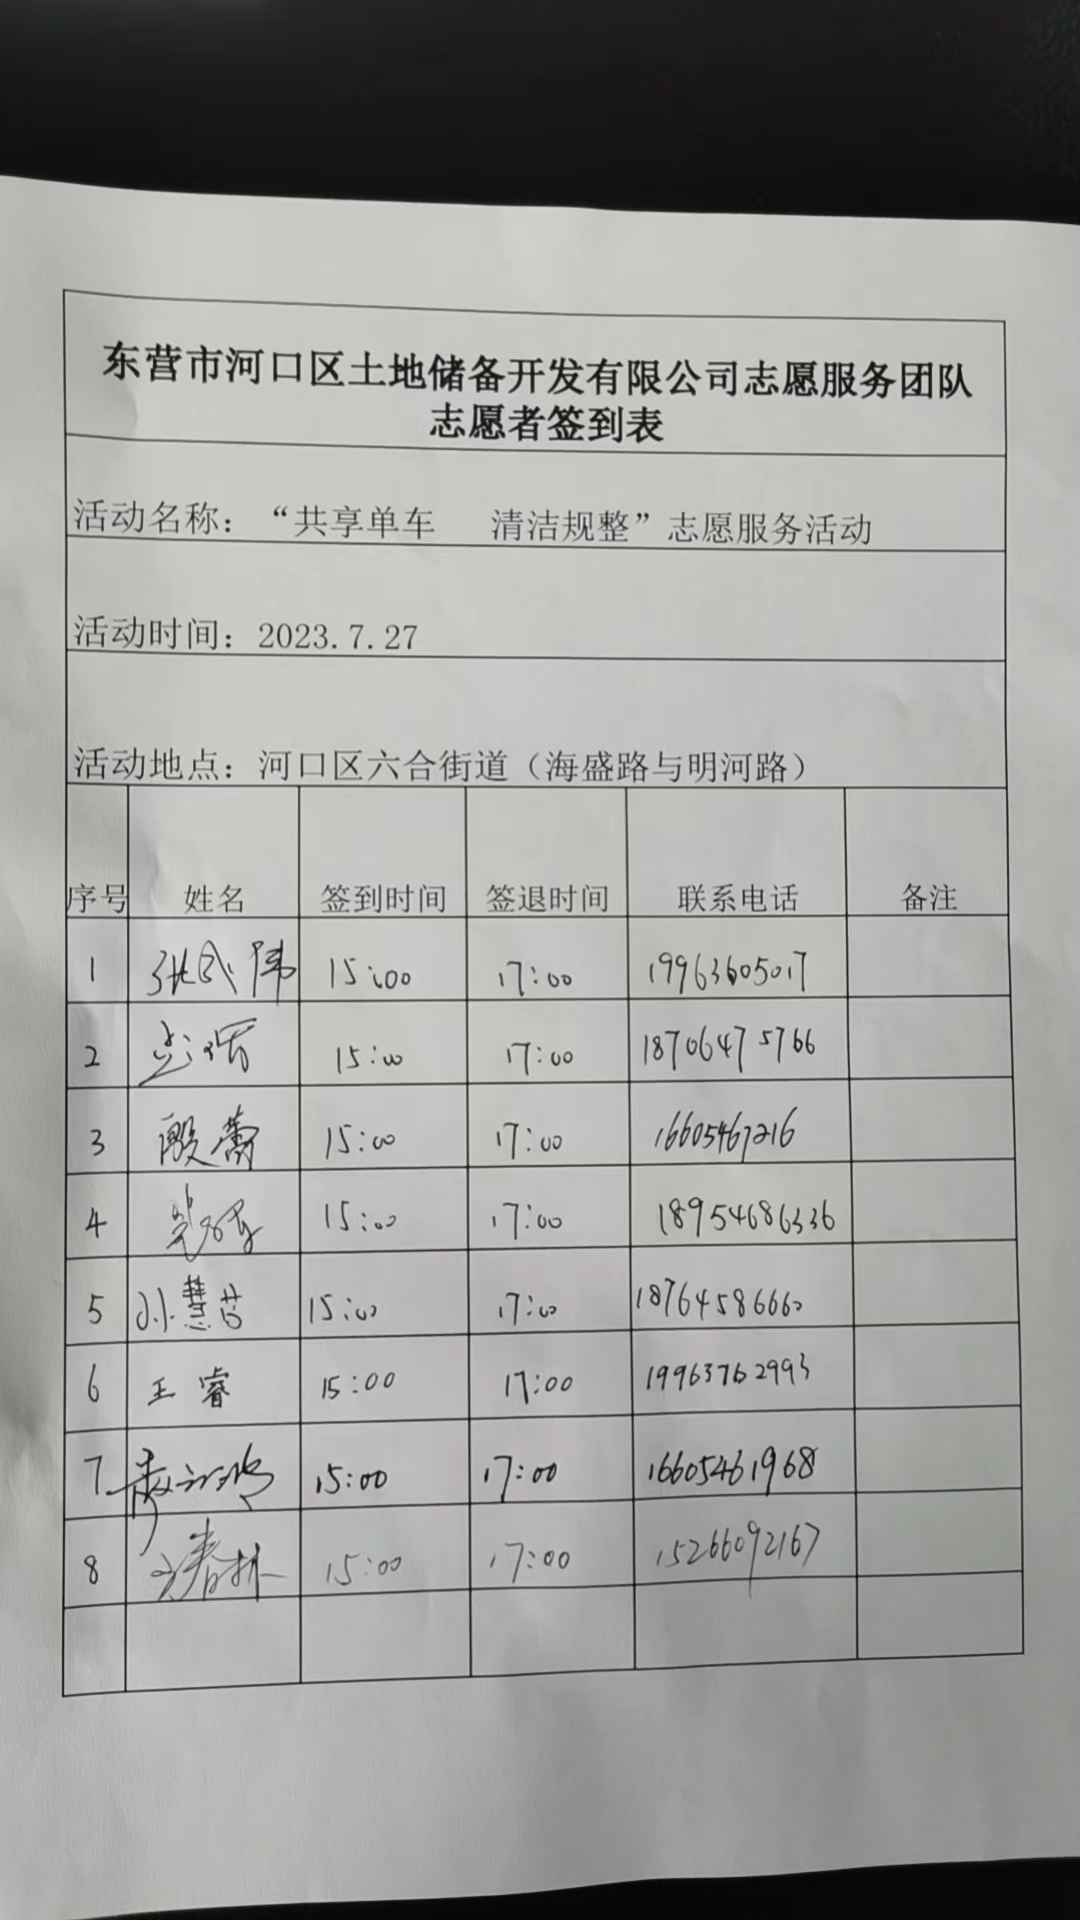 东营市河口区土地储备开发有限公司志愿服务团队
志愿者签到表
活动名称：“共享单车 清洁规整”志愿服务活动
活动时间：2023.7.27
活动地点：河口区六合街道（海盛路与明河路）
序号 姓名 签到时间 签退时间 联系电话 备注
1 15:00 17:00 19963605017
2 15:00 17:00 18706475766
3 殷蕾 15:00 17:00 16605467216
4 15:00 17:00 18954686336
5 孙慧 15:00 17:00 18764586660
6 王睿 15:00 17:00 19963762993
7 15:00 17:00 16605461968
8 15:00 17:00 15266092167